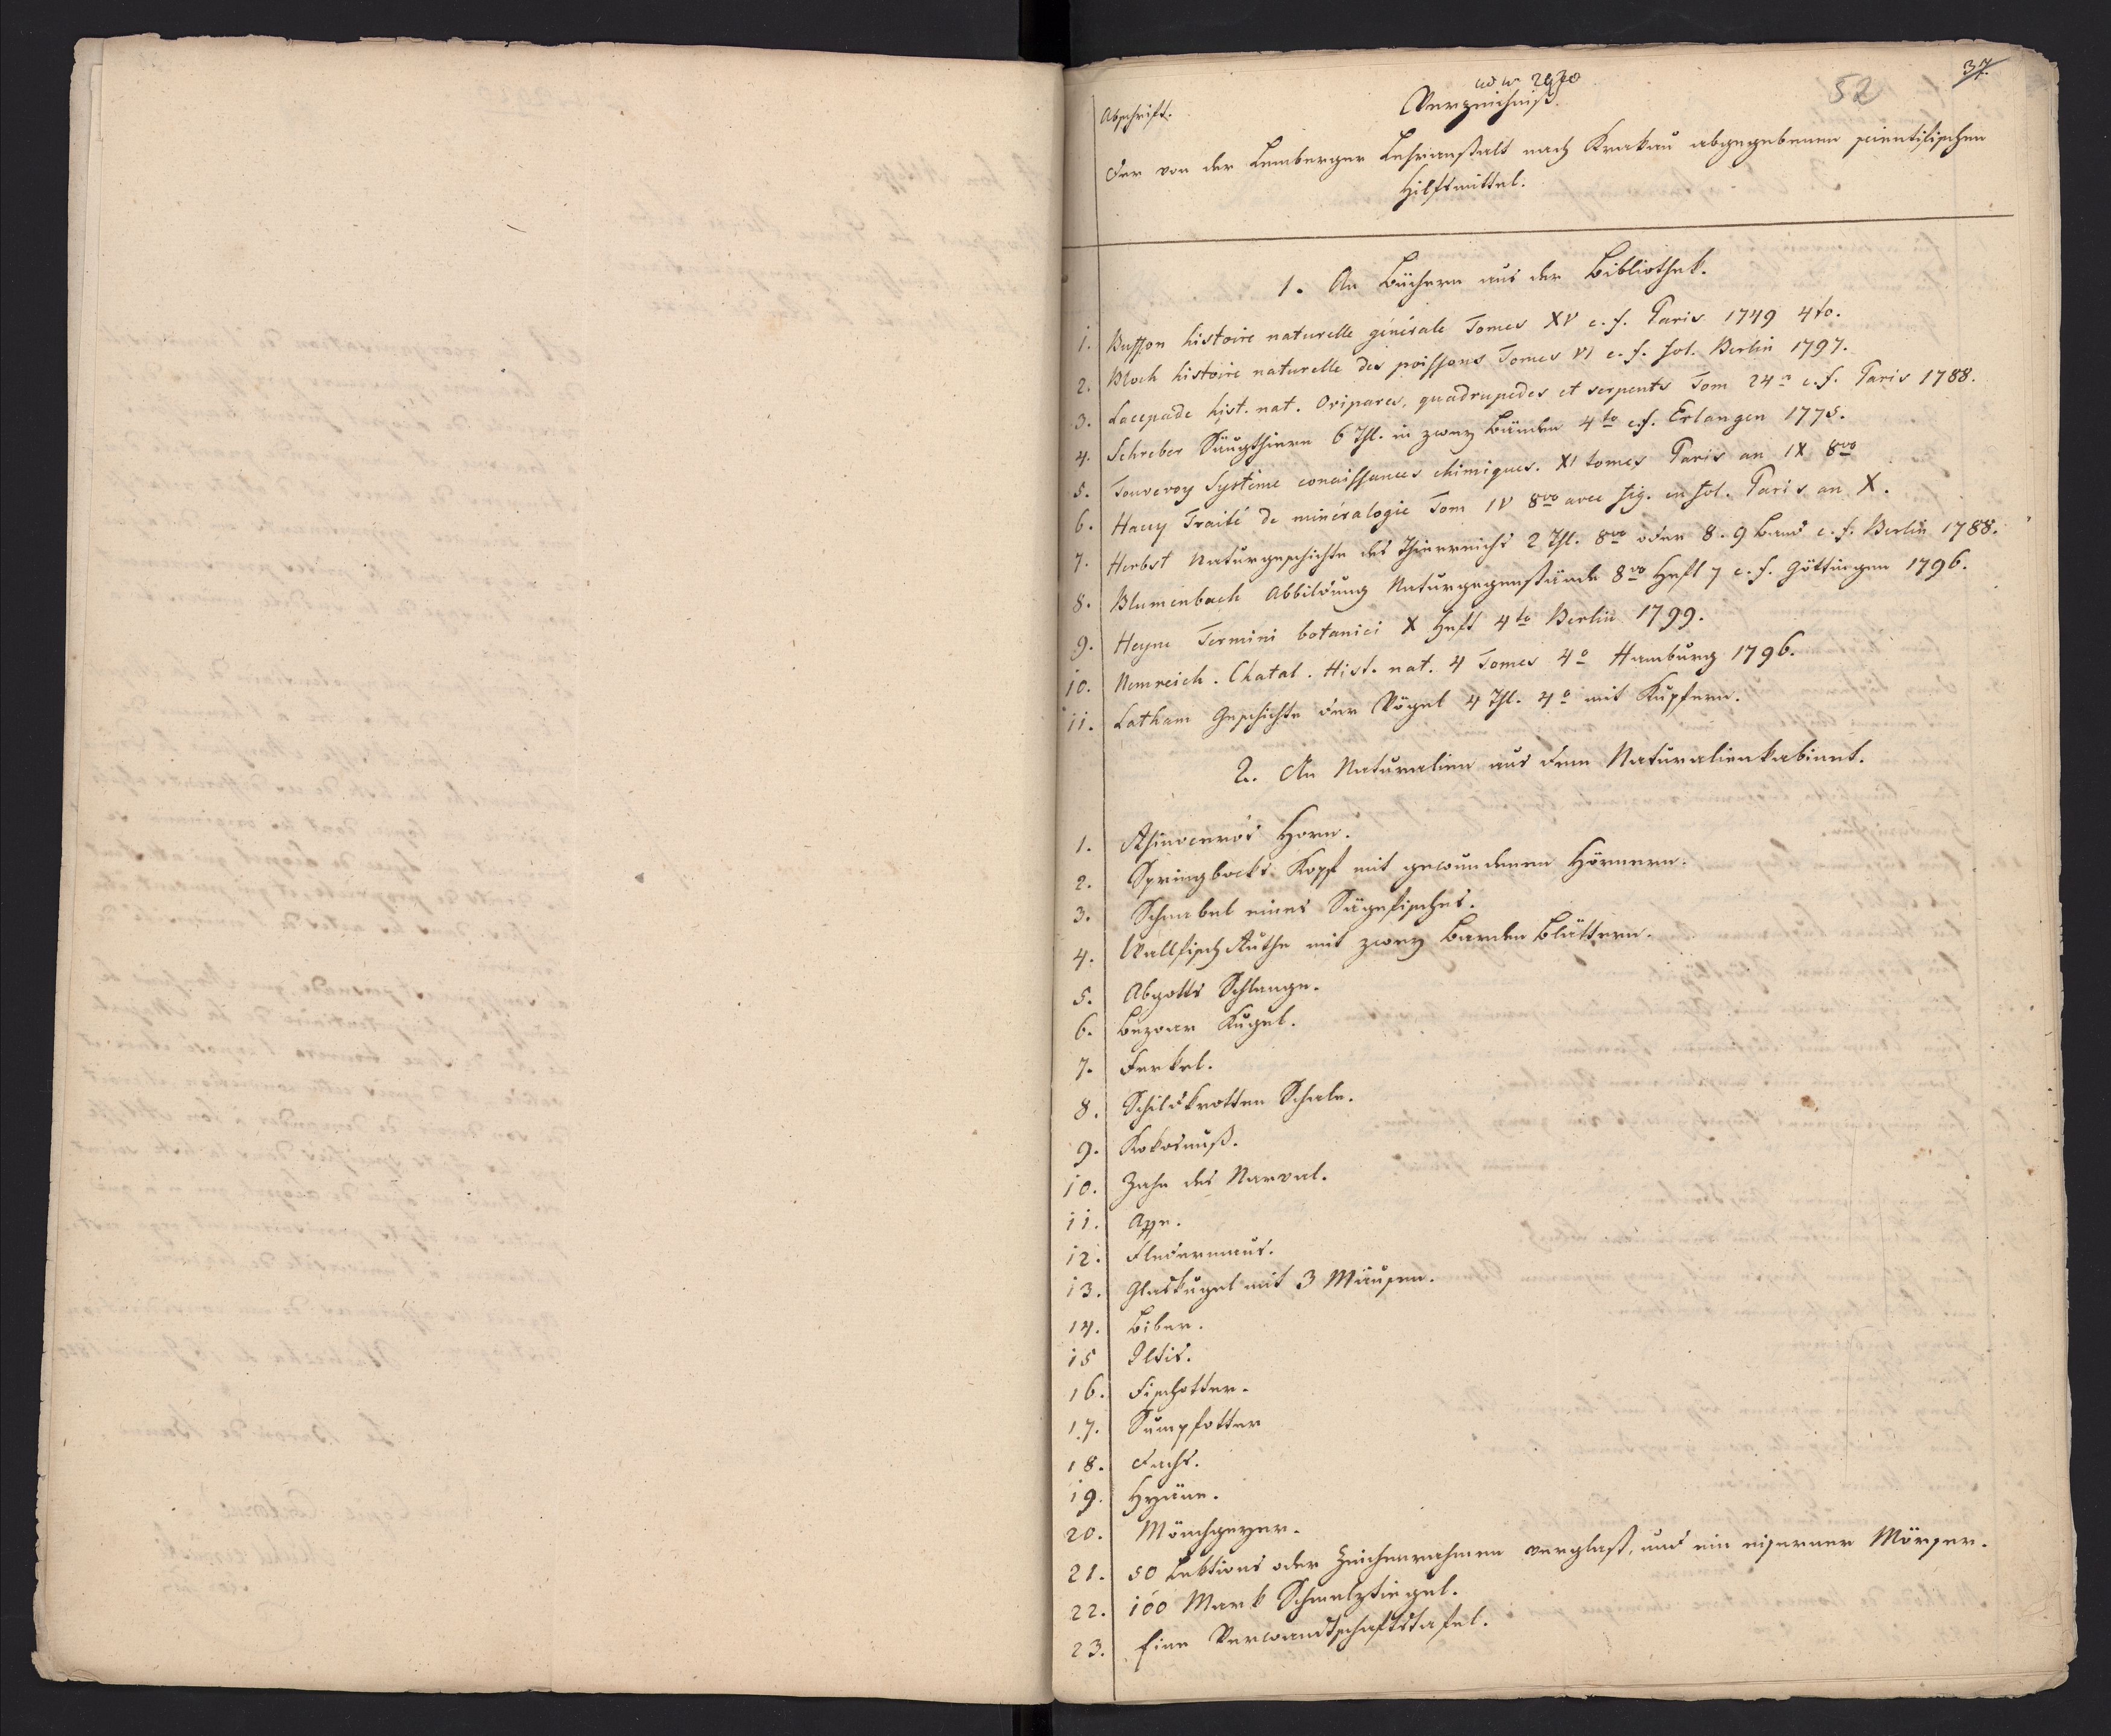 37.
52
ad N 2970
Abschrift.
Verzeichniß.
der von der Lemberger Lehranstalt nach Krakau abgegebenen scientifischen
Hilfsmittel.
1. An Büchern aus der Bibliothek.
1. Buffon histoire naturelle générale Tomes XV c. f. Paris 1749 4to.
2. Bloch histoire naturelle des poissons Tomes VI c. f. fol. Berlin 1797.
3. Lacepade hist. nat. Oripares, quadrupedes et serpents Tom 24º c. f. Paris 1788.
4. Schreber Säugthiere 6 Thl. in zwey Bänden 4to c. f. Erlangen 1775.
5. Fourcroy Systeme conaissances chimiques. XI tomes Paris an IX 8vo
6. Hauy Traité de minéralogie Tom IV 8vo avec fig. en fol. Paris an X.
7. Herbst Naturgeschichte des Thierreichs 2 Thl. 8vo oder 8. 9 Band c. f. Berlin 1788.
8. Blumenbach Abbildung Naturgegenstände 8vo Heft 7 c. f. Göttingen 1796.
9. Heyne Termini botanici X Heft 4to Berlin 1799.
10. Nemreich. Chatal. Hist. nat. 4 Tomes 4º Hamburg 1796.
11. Latham Geschichte der Vögel 4 Thl. 4º mit Kupfern.
2. An Naturalien aus dem Naturalienkabinet.
1. Rhinoceros Horn.
2. Springbocks Kopf mit gewundenen Hörnern.
3. Schnabel eines Sägefisches.
4. Wallfisch Ruthe mit zwey Barden Blättern.
5. Abgotts Schlange.
6. Bezoar Kugel.
7. Ferkel.
8. Schildkrotten Schale.
9. Kokosnuß.
10. Zahn des Narval.
11. Affe.
12. Fledermaus.
13. Glaskugel mit 3 Mäusen.
14. Biber.
15 Iltis.
16. Fischotter.
17. Sumpfotter
18. Dachs.
19. Hyäne.
20. Mönchgeyer.
21. 50 Lektions oder Zeichenrahmen verglast, und ein eiserner Mörser.
22. 100 Mark Schmelztiegel.
23. Eine Verwandtschaftstafel.